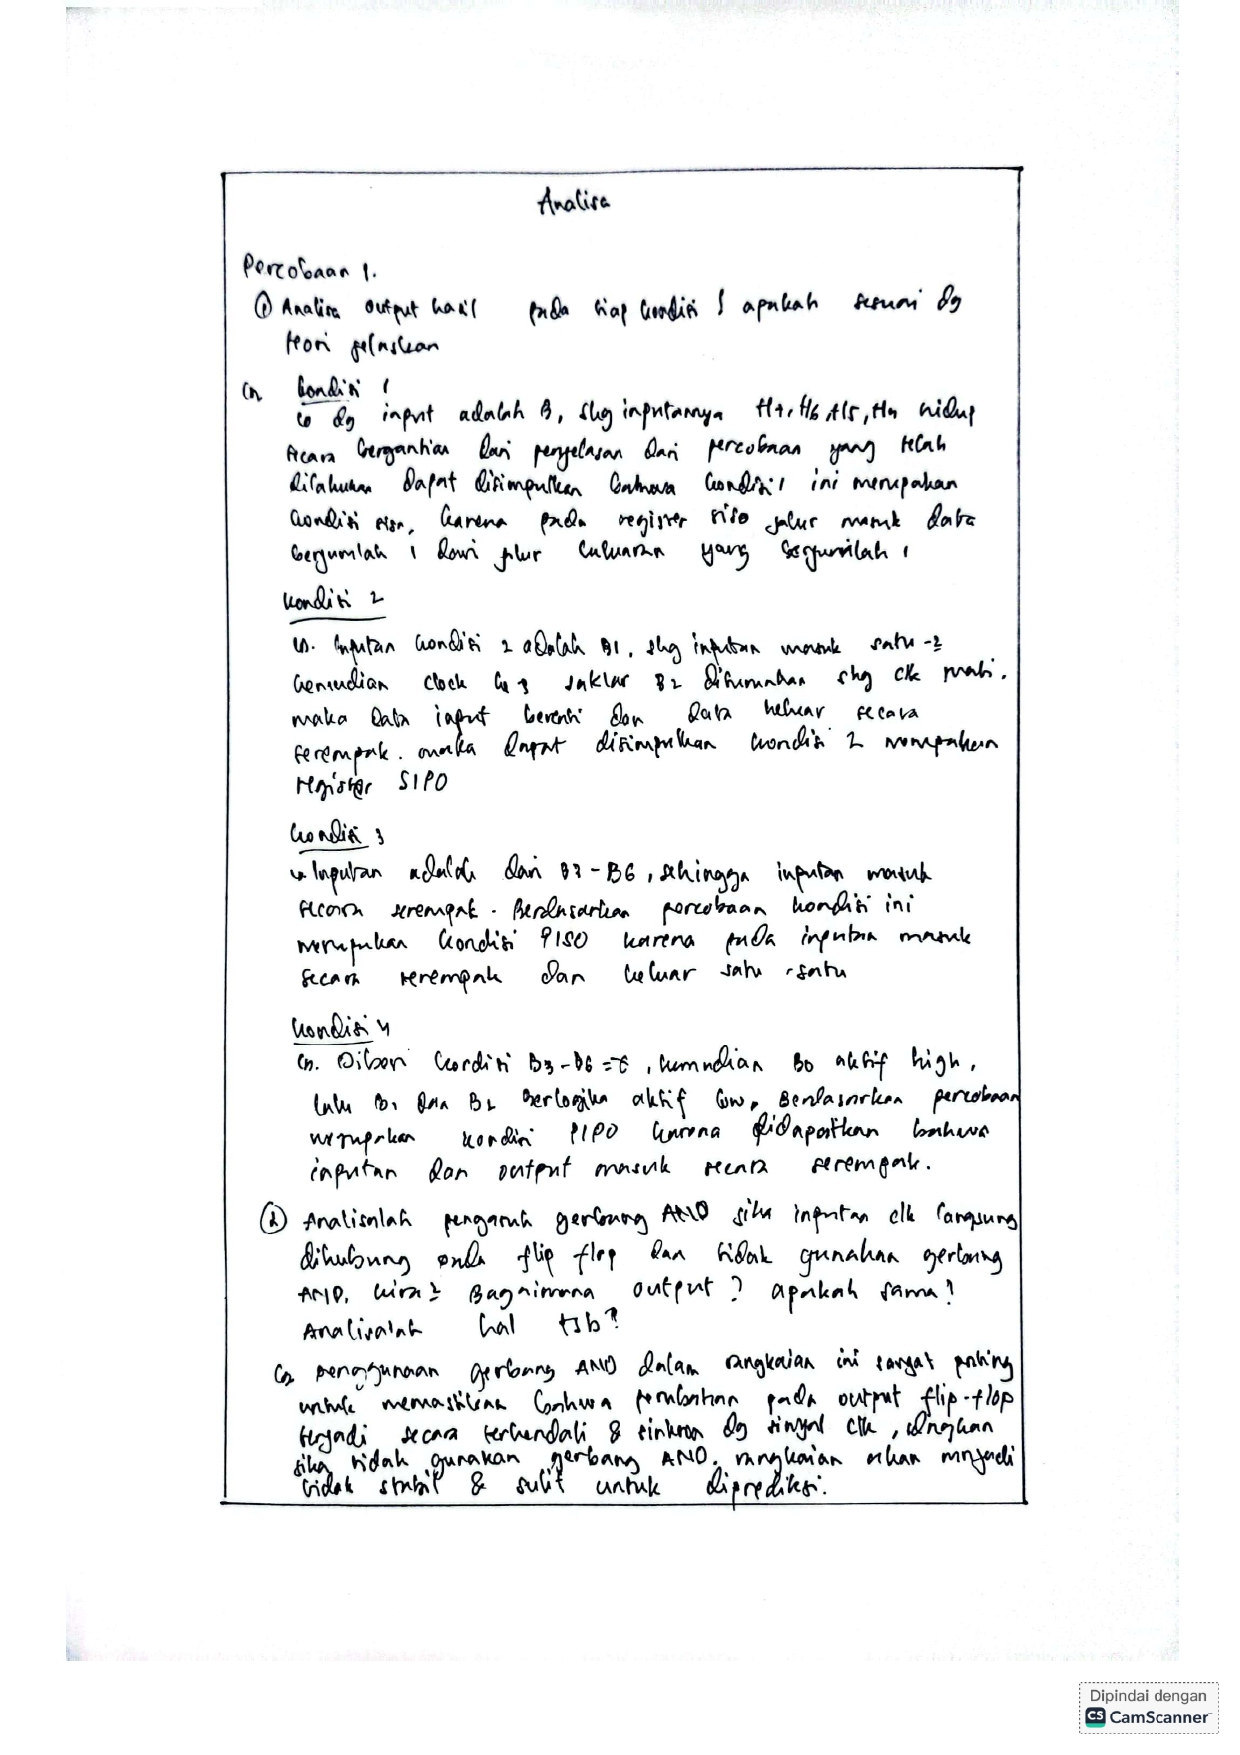 Analisa
Percobaan 1.
① Analisa output hasil pada tiap kondisi & apakah sesuai dg
teori jelaskan
Kondisi 1
dg input adalah B, shg inputannya H7, H6, H5, H4 hidup
secara bergantian dari penjelasan dari percobaan yang telah
dilakukan dapat disimpulkan bahwa kondisi 1 ini merupakan
kondisi siso, karena pada register siso jalur masuk data
berjumlah 1 dari jalur keluaran yang berjumlah 1
Kondisi 2
Inputan kondisi 2 adalah B1, shg inputan masuk satu-2
kemudian clock ke 3 saklar B2 diturunkan shg clk mati.
maka data input berenti dan data keluar secara
serempak. maka dapat disimpulkan kondisi 2 merupakan
register SIPO
Kondisi 3
Inputan adalah dari B3-B6, sehingga inputan masuk
secara serempak. Berdasarkan percobaan kondisi ini
merupakan kondisi PISO karena pada inputan masuk
secara serempak dan keluar satu-satu
Kondisi 4
Diberi kondisi B3-B6 = , kemudian B0 aktif high,
lalu B1 dan B2 berlogika aktif low, Berdasarkan percobaan
merupakan kondisi PIPO karena didapatkan bahwa
inputan dan output masuk secara serempak.
② Analisalah pengaruh gerbang AND jika inputan clk langsung
dihubung pada flip flop dan tidak gunakan gerbang
AND, kira2 Bagaimana output? apakah sama?
Analisalah hal tsb?
penggunaan gerbang AND dalam rangkaian ini sangat penting
untuk memastikan bahwa perubahan pada output flip-flop
terjadi secara terkendali & sinkron dg sinyal clk, sedangkan
jika tidak gunakan gerbang AND, rangkaian akan menjadi
tidak stabil & sulit untuk diprediksi.
Dipindai dengan
CS CamScanner